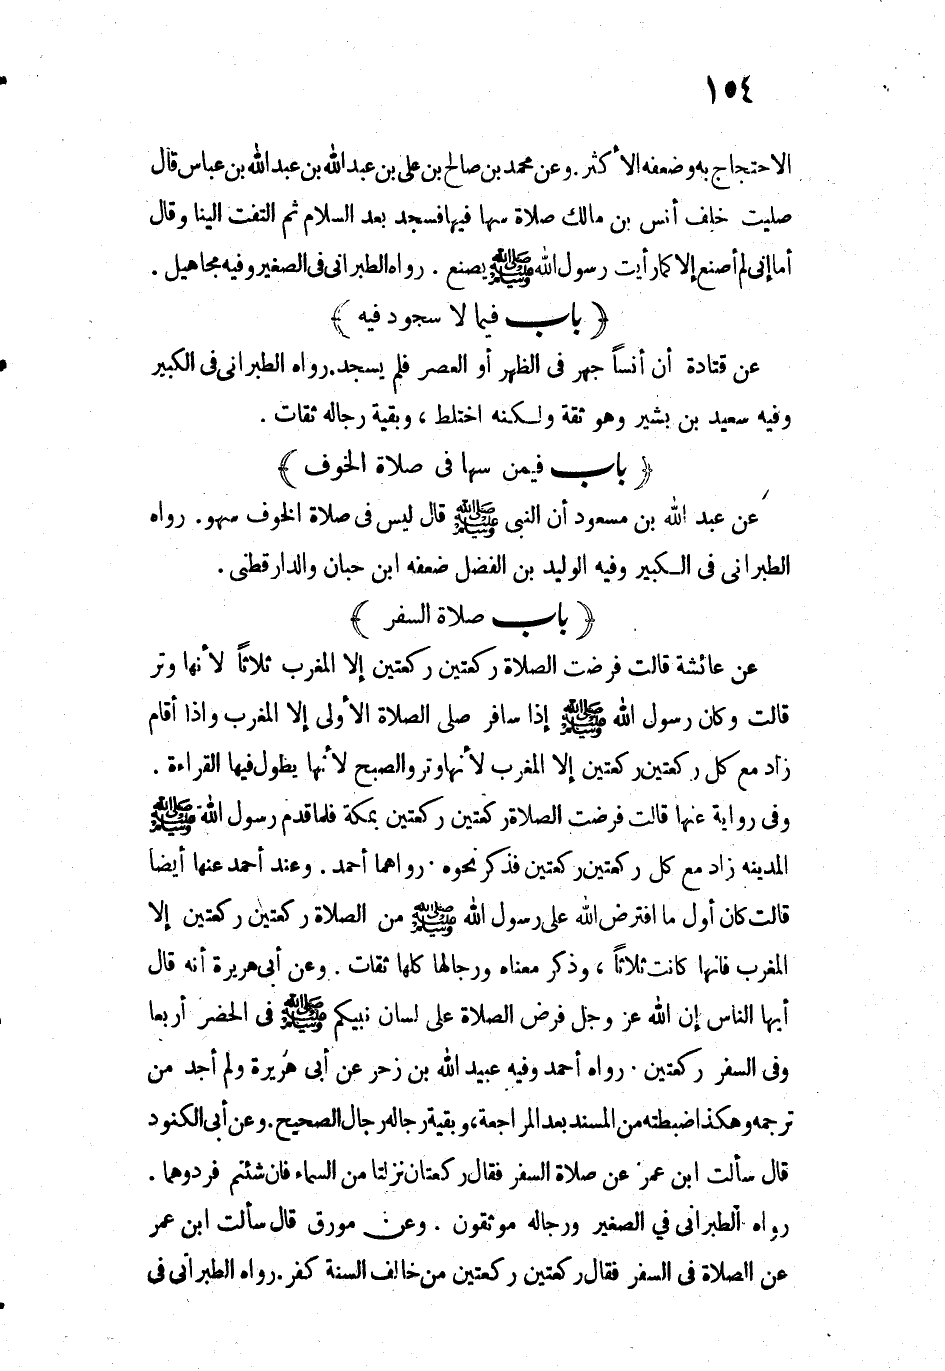 ١٥٤
الاحتجاج به وضعفه الأكثر . وعن محمد بن صالح بن على بن عبد الله بن عبد الله بن عباس قال
صليت خلف أنس بن مالك صلاة سها فيها فسجد بعد السلام ثم التفت الينا وقال
أما إنى لم أصنع إلا كما رأيت رسول الله ﷺ يصنع . رواه الطبرانى فى الصغير وفيه مجاهيل .
﴿ باب فيما لا سجود فيه ﴾
عن قتادة أن أنساً جهر فى الظهر أو العصر فلم يسجد . رواه الطبرانى فى الكبير
وفيه سعيد بن بشير وهو ثقة ولكنه اختلط ، وبقية رجاله ثقات .
﴿ باب فيمن سها فى صلاة الخوف ﴾
عن عبد الله بن مسعود أن النبى ﷺ قال ليس فى صلاة الخوف سهو . رواه
الطبرانى فى الكبير وفيه الوليد بن الفضل ضعفه ابن حبان والدارقطنى .
﴿ باب صلاة السفر ﴾
عن عائشة قالت فرضت الصلاة ركعتين ركعتين إلا المغرب ثلاثاً لأنها وتر
قالت وكان رسول الله ﷺ إذا سافر صلى الصلاة الأولى إلا المغرب واذا أقام
زاد مع كل ركعتين ركعتين إلا المغرب لأنها وتر والصبح لأنها يطول فيها القراءة .
وفى رواية عنها قالت فرضت الصلاة ركعتين ركعتين بمكة فلما قدم رسول الله ﷺ
المدينه زاد مع كل ركعتين ركعتين فذكر نحوه . رواهما أحمد . وعند أحمد عنها أيضاً
قالت كان أول ما افترض الله على رسول الله ﷺ من الصلاة ركعتين ركعتين إلا
المغرب فانها كانت ثلاثاً ، وذكر معناه ورجالها كلها ثقات . وعن أبى هريرة أنه قال
أيها الناس إن الله عز وجل فرض الصلاة على لسان نبيكم ﷺ فى الحضر أربعا
وفى السفر ركعتين . رواه أحمد وفيه عبيد الله بن زحر عن أبى هريرة ولم أجد من
ترجمه وهكذا ضبطته من المسند بعد المراجعة ، وبقية رجاله رجال الصحيح . وعن أبى الكنود
قال سألت ابن عمر عن صلاة السفر فقال ركعتان نزلتا من السماء فان شئتم فردوهما .
رواه الطبرانى في الصغير ورجاله موثقون . وعن مورق قال سألت ابن عمر
عن الصلاة فى السفر فقال ركعتين ركعتين من خالف السنة كفر . رواه الطبرانى فى